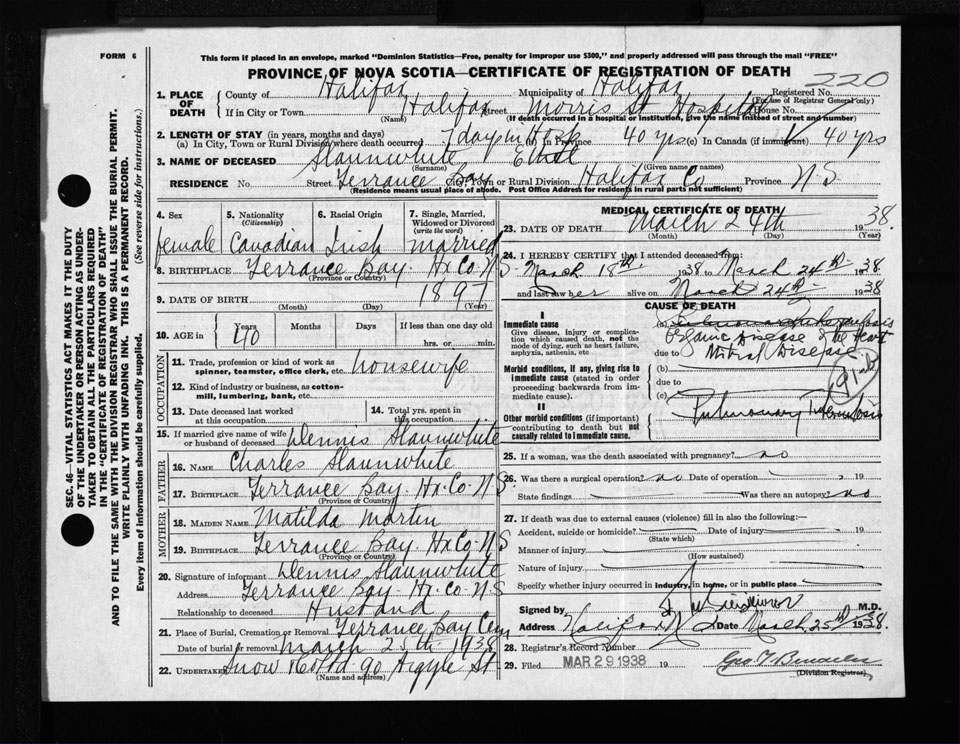 FORM 6
This form if placed in an envelope, marked "Dominion Statistics—Free, penalty for improper use $300," and properly addressed will pass through the mail "FREE"
PROVINCE OF NOVA SCOTIA—CERTIFICATE OF REGISTRATION OF DEATH
220
1. PLACE OF DEATH
County of Halifax Municipality of Halifax Registered No.
(For use of Registrar General only)
If in City or Town Halifax Street Morris St Hospital House No.
(Name) (If death occurred in a hospital or institution, give the name instead of street and number)
2. LENGTH OF STAY (in years, months and days)
(a) In City, Town or Rural Division where death occurred 7 days in Hosp (b) In Province 40 yrs (c) In Canada (if immigrant) 40 yrs
3. NAME OF DECEASED Slaunwhite Ethel
(Surname) (Given name or names)
RESIDENCE No. Street Terrance Bay City, Town or Rural Division Halifax Co Province N S
(Residence means usual place of abode. Post Office Address for residents in rural parts not sufficient)
4. Sex female
5. Nationality (Citizenship) Canadian
6. Racial Origin Irish
7. Single, Married, Widowed or Divorced (write the word) married
8. BIRTHPLACE Terrance Bay. Hx Co N S
(Province or Country)
9. DATE OF BIRTH 1897
(Month) (Day) (Year)
10. AGE in Years 40 Months Days If less than one day old
hrs. or min.
OCCUPATION
11. Trade, profession or kind of work as spinner, teamster, office clerk, etc. housewife
12. Kind of industry or business, as cotton-mill, lumbering, bank, etc.
13. Date deceased last worked at this occupation
14. Total yrs. spent in this occupation
15. If married give name of wife or husband of deceased Dennis Slaunwhite
FATHER
16. NAME Charles Slaunwhite
17. BIRTHPLACE Terrance Bay. Hx Co N S
(Province or Country)
MOTHER
18. MAIDEN NAME Matilda Martin
19. BIRTHPLACE Terrance Bay. Hx Co N S
(Province or Country)
20. Signature of informant Dennis Slaunwhite
Address Terrance Bay Hx Co N S
Relationship to deceased Husband
21. Place of Burial, Cremation or Removal Terrance Bay Cem
Date of burial or removal March 25th 1938
22. UNDERTAKER Snow & Co Ltd 90 Argyle St
(Name and address)
MEDICAL CERTIFICATE OF DEATH
23. DATE OF DEATH March 24th 1938
(Month) (Day) (Year)
24. I HEREBY CERTIFY that I attended deceased from:
March 18th 1938 to March 24th 1938
and last saw her alive on March 24th 1938
CAUSE OF DEATH
I
Immediate cause
Give disease, injury or complication which caused death, not the mode of dying, such as heart failure, asphyxia, asthenia, etc
(a) Pulmonary Tuberculosis
Organic Disease of the heart
due to Mitral Disease
Morbid conditions, if any, giving rise to immediate cause (stated in order proceeding backwards from immediate cause).
(b)
due to
(c)
II
Other morbid conditions (if important) contributing to death but not causally related to immediate cause.
Pulmonary Tuberculosis
25. If a woman, was the death associated with pregnancy? no
26. Was there a surgical operation? no Date of operation , 19
State findings Was there an autopsy? no
27. If death was due to external causes (violence) fill in also the following:—
Accident, suicide or homicide? Date of injury 19
(State which)
Manner of injury
(How sustained)
Nature of injury
Specify whether injury occurred in industry, in home, or in public place
Signed by M.D.
Address Halifax N S Date March 25th 1938.
28. Registrar's Record Number
29. Filed MAR 29 1938 19
(Division Registrar)
SEC. 46—VITAL STATISTICS ACT MAKES IT THE DUTY
OF THE UNDERTAKER OR PERSON ACTING AS UNDERTAKER
TO OBTAIN ALL THE PARTICULARS REQUIRED
IN THE "CERTIFICATE OF REGISTRATION OF DEATH"
AND TO FILE THE SAME WITH THE DIVISION REGISTRAR WHO SHALL ISSUE THE BURIAL PERMIT.
WRITE PLAINLY WITH UNFADING INK. THIS IS A PERMANENT RECORD.
Every item of information should be carefully supplied. (See reverse side for instructions.)